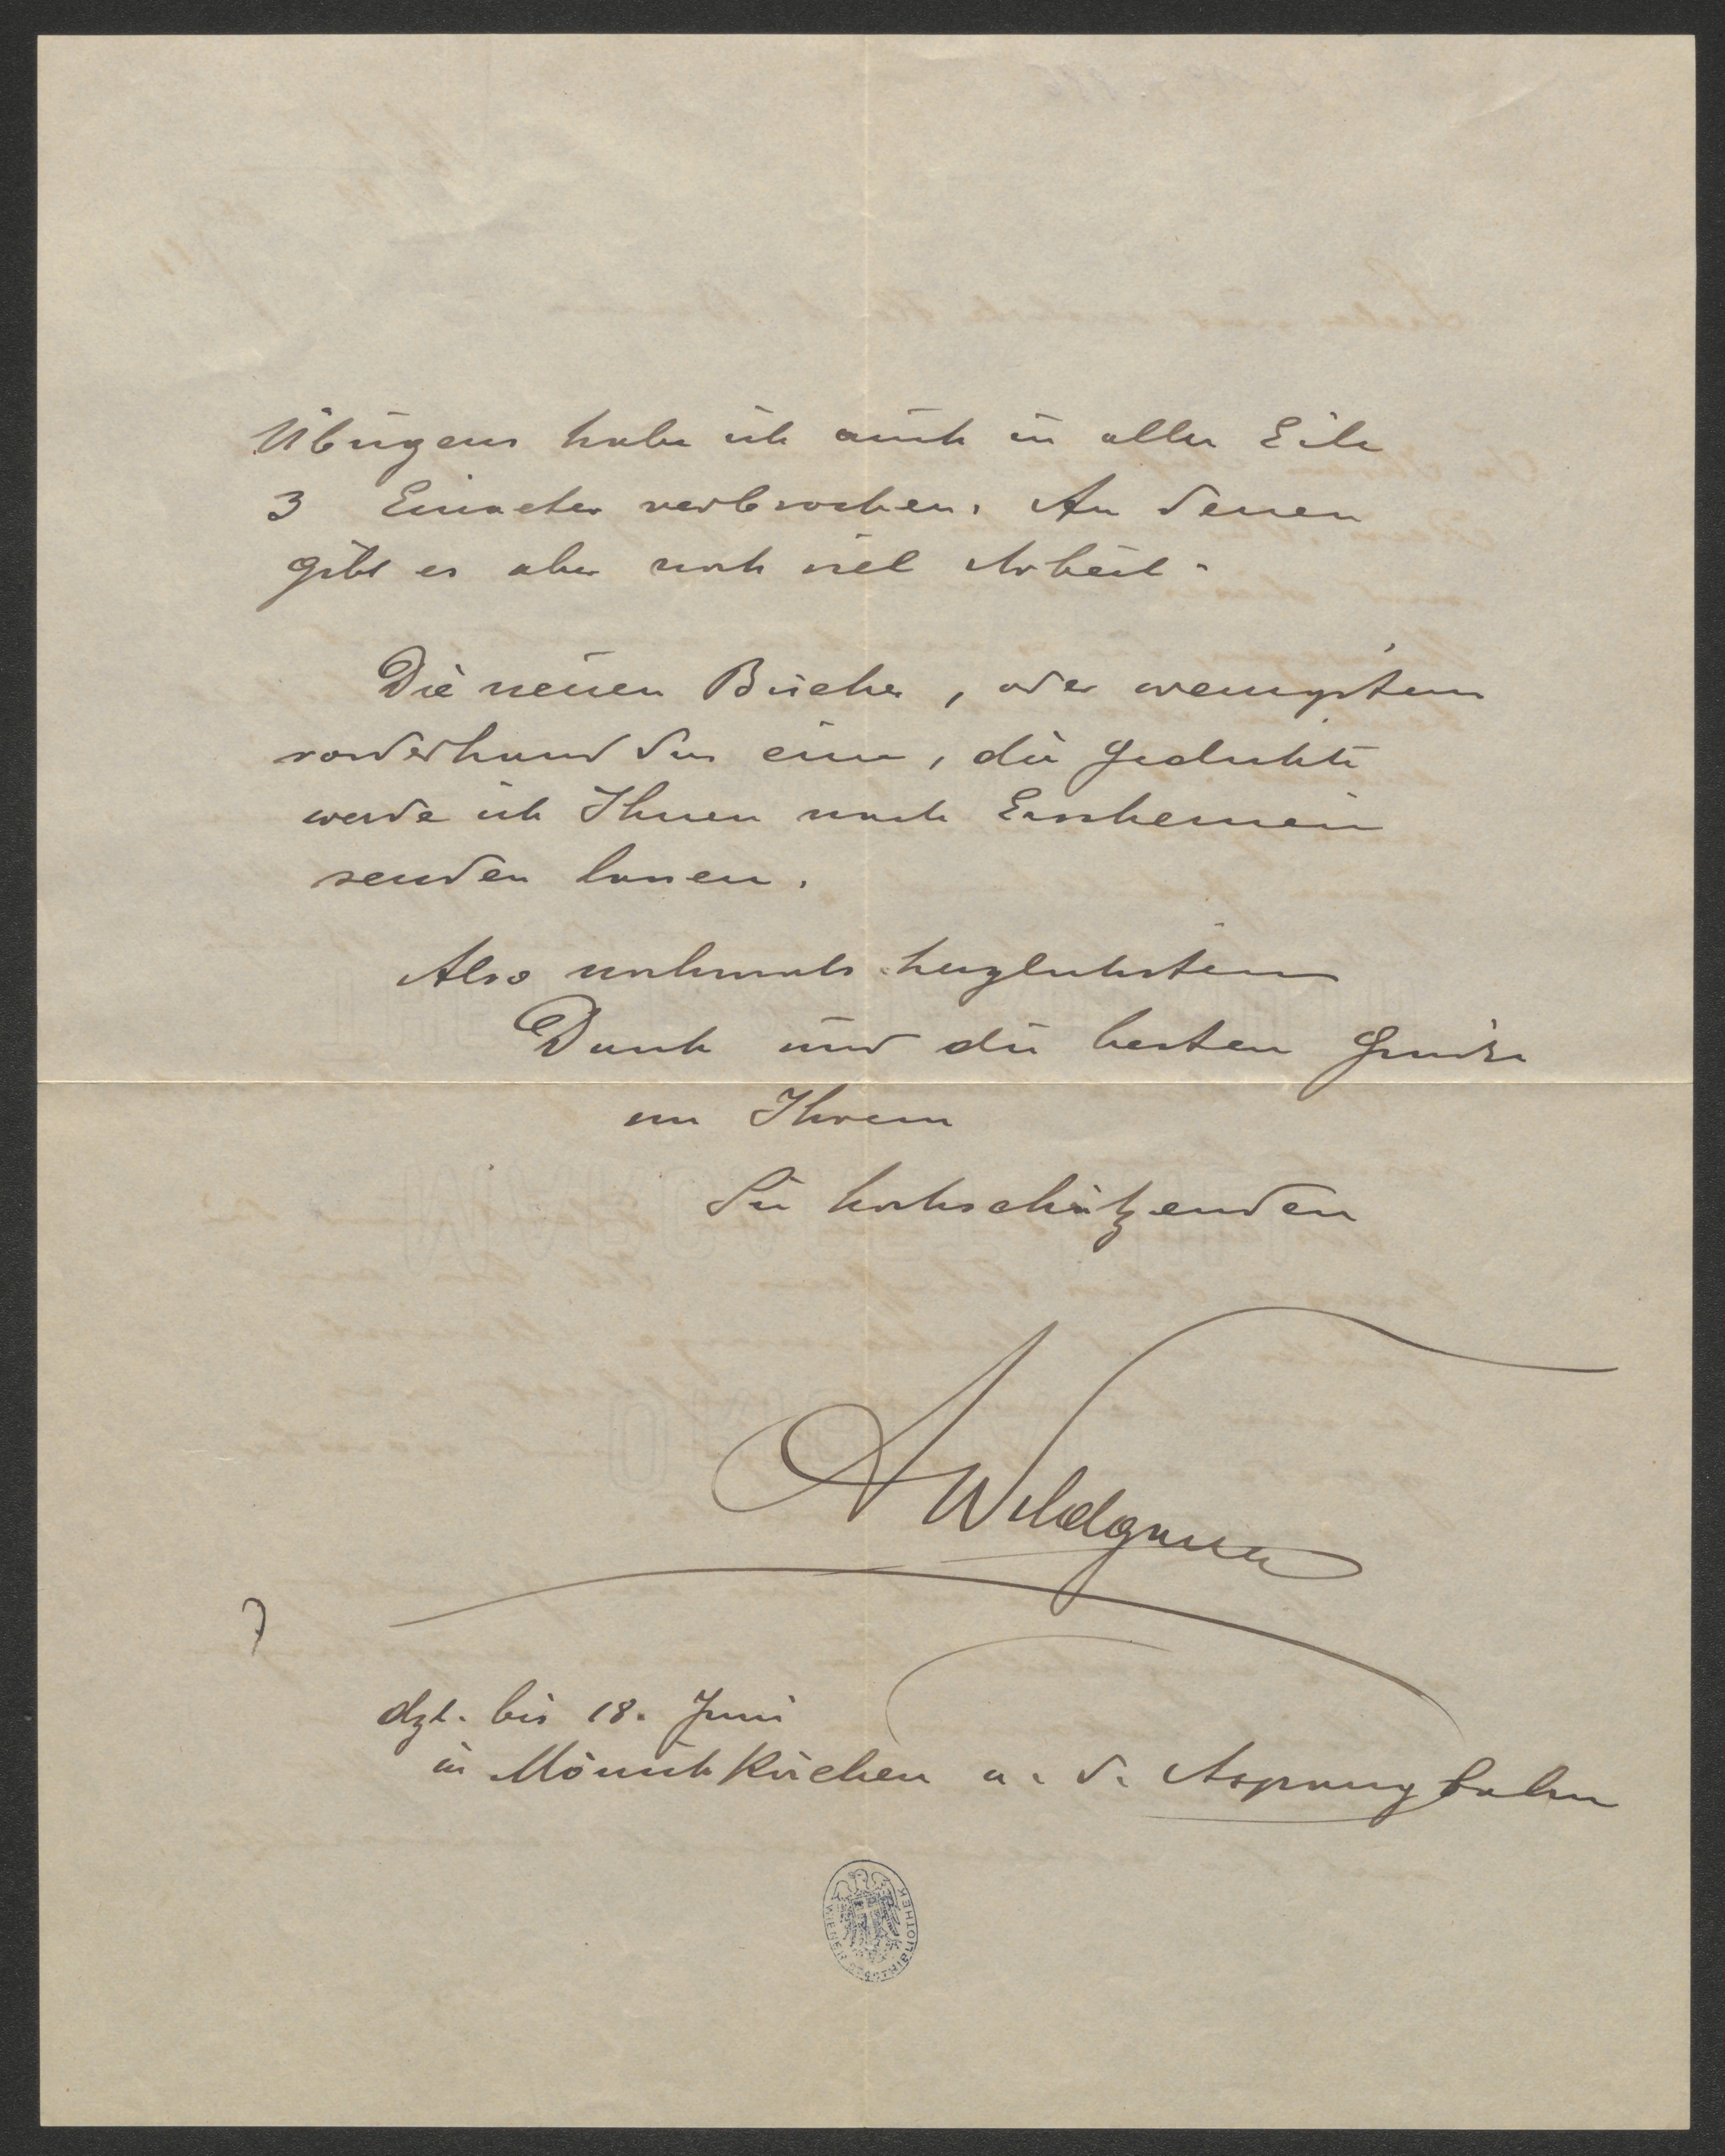 Übrigens habe ich auch in aller Eile
3 Einacter verbrochen. An denen
gibt es aber noch viel Arbeit.
Die neuen Bücher, oder wenigstens
vorderhand das eine, die Gedichte
werde ich Ihnen nach Erscheinen
senden lassen.
Also nochmals herzlichsten
Dank und die besten Grüße
von Ihrem
Sie hochschätzenden
A Wildgans
dzt. bis 18. Juni
in Mönichkirchen a. d. Aspangbahn
WIENER STADTBIBLIOTHEK